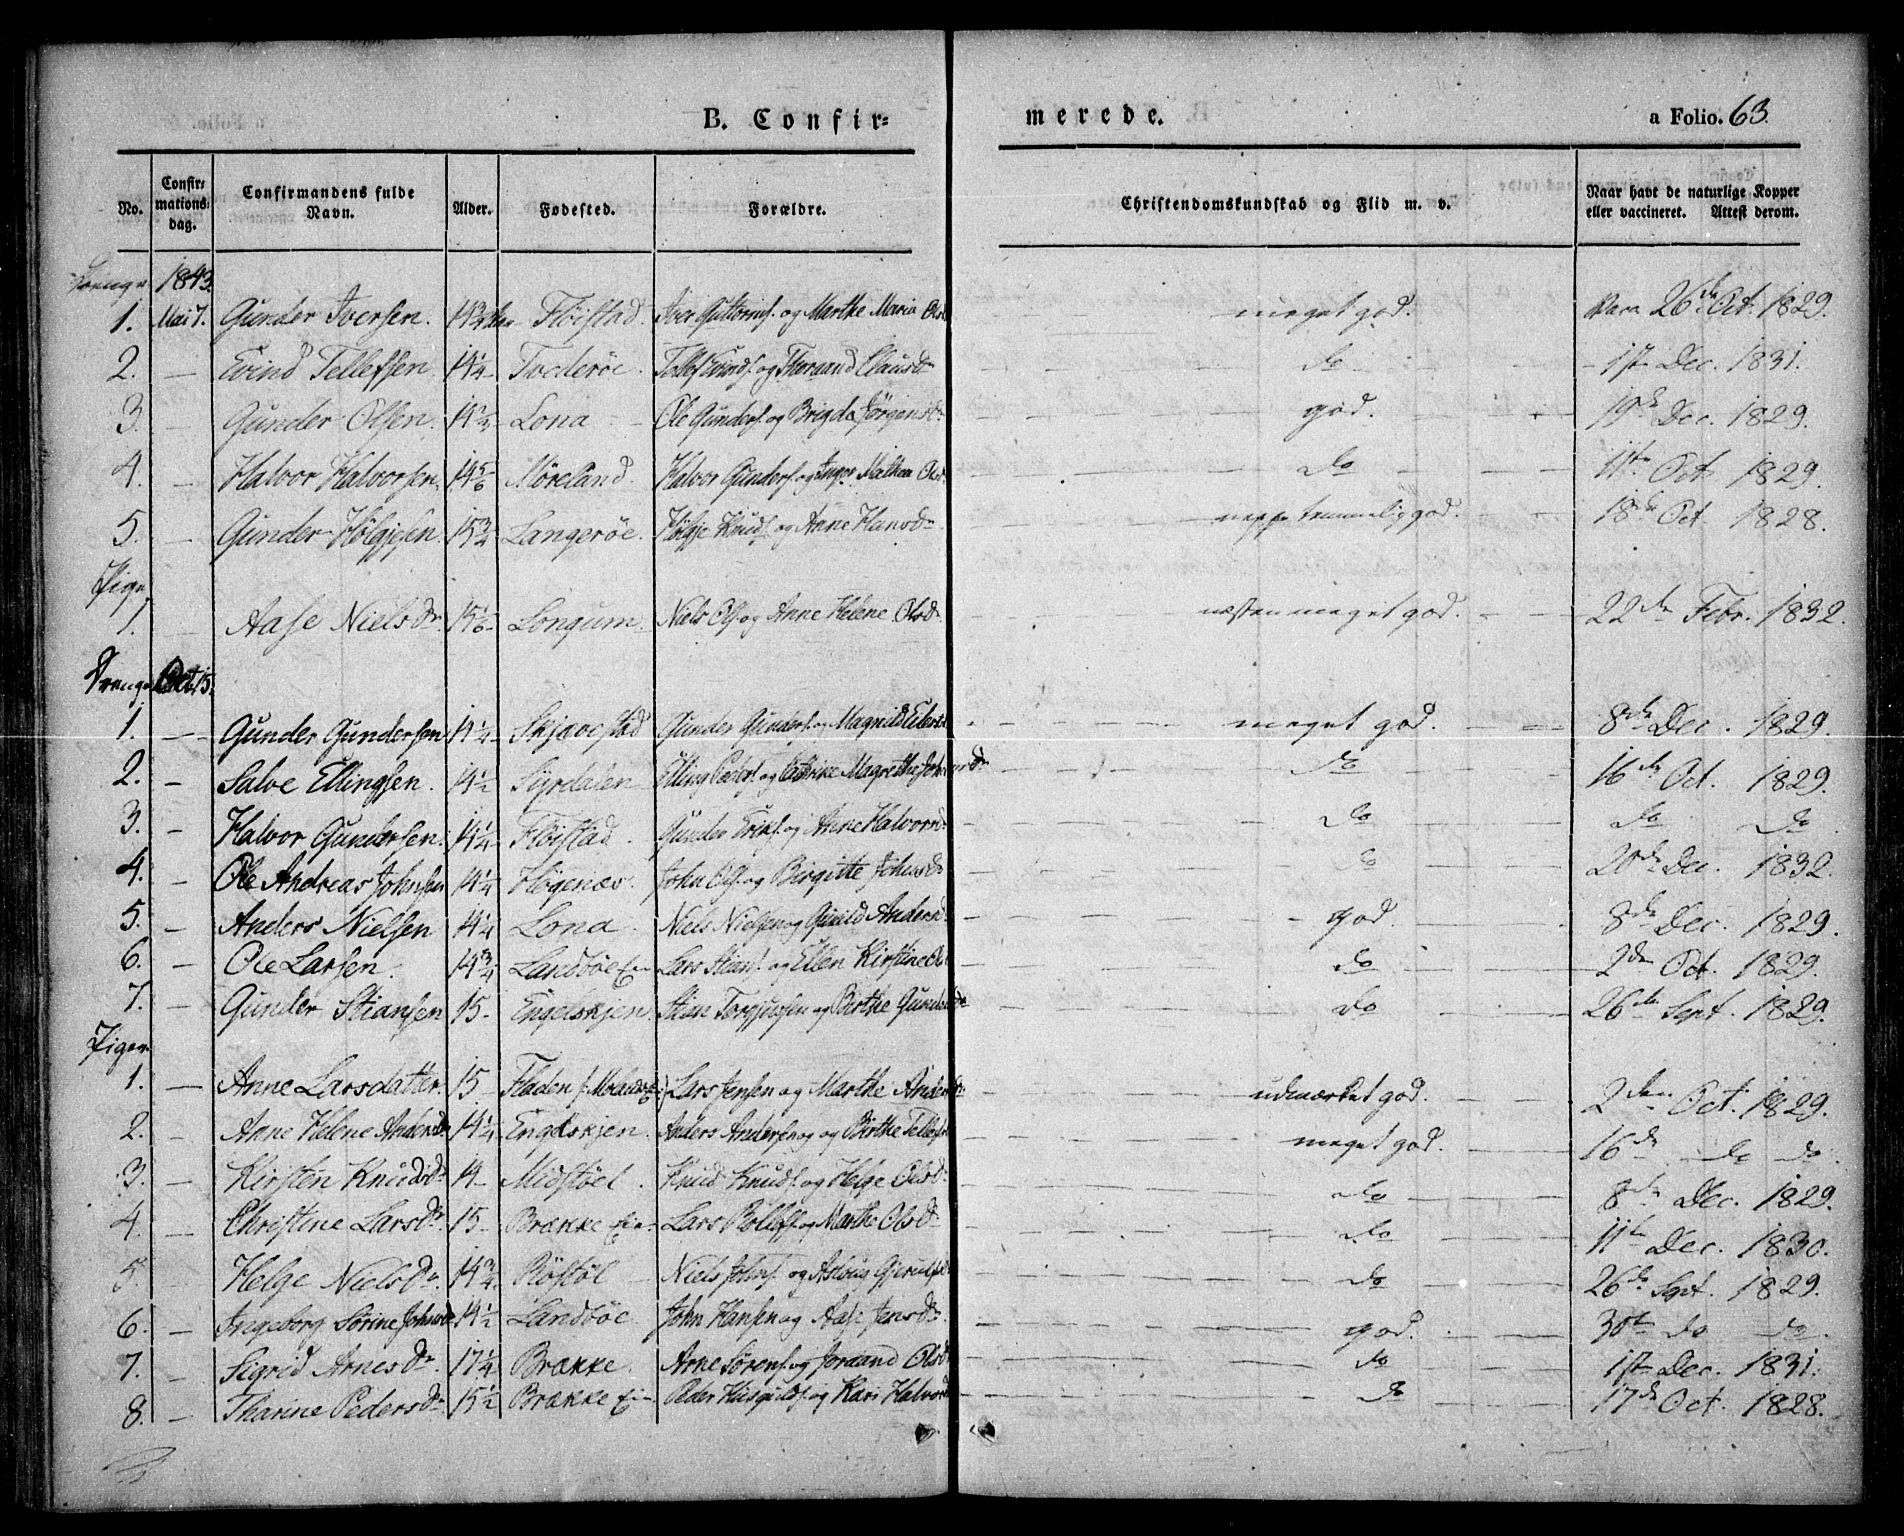 B. Confir- merede. a Folio. 63.
No. Confirmations dag. Confirmandens fulde Navn. Alder. Fødested. Forældre. Christendomskundskab og Flid m. v. Naar havt de naturlige Kopper eller vaccineret. Attest derom.
Drenge 1843.
1. Mai 7. Gunder Iversen. 14 3/4 Fløistad. Iver Guttormsf. og Marthe Maria Olsd meget god. Vacc. 26de Oct. 1829.
2. — Evind Tellefsen 14 1/4 Tvederøe. Tellef Evindsf. og Thoraand Clausdr do 1ste Dec. 1831.
3. — Gunder Olsen. 14 1/2 Lona Ole Gundersf. og Brigda Jørgensdr god. 19de Dec. 1829.
4. — Halvor Halvorsen. 14 5/6 Møreland. Halvor Gundersf. og Inger Mathea Olsd. do 11te Oct. 1829.
5. — Gunder Hølgjesen 15 3/4 Langerøe. Hølgje Knudsf. og Anne Hansdr neppe temmelig god. 18de Oct. 1828.
Piger
1. Aase Nielsdr 15 1/6 Longum. Niels Olsf og Anne Helene Olsd næsten meget god. 22de Febr. 1832.
Drenge Oct. 15.
1. — Gunder Gundersen 14 1/4 Skjævestad Gunder Gundersf. og Magnild Eilersd meget god. 8de Dec. 1829.
2. — Salve Ellingsen. 14 1/2 Syrdalen Elling Pedersf. og Magrethe Johnsdr do 16de Oct. 1829.
3. — Halvor Gundersen. 14 1/4 Fløistad. Gunder Eriksf. og Anne Halvorsd do do do
4. — Ole Andreas Johnsen 14 1/4 Høgenæs. John Olsf. og Birgitte Johnsd do 20de Dec. 1832.
5. — Anders Nielsen 14 1/4 Lona. Niels Nielsen og Gunild Andersd god. 8de Dec. 1829.
6. — Ole Larsen. 14 3/4 Landbøe Ei— Lars Stiansf. og Ellen Kirstine Ols do 2den Oct. 1829.
7. — Gunder Stiansen 15. Engelskjen. Stian Torgjusen og Birthe Gundersd do 26de Sept. 1829.
Piger.
1. — Anne Larsdatter 15. Fladen Lars Jensen og Marthe Andersd udmærket god. 2den Oct. 1829.
2. — Anne Helene Andersd 14 1/4 Engelskjen. Anders Andersen og Birthe Tellefs meget god. 16de do do
3. — Kirsten Knudsdr 14 Midtbøe Knud Knudsf. og Helge Olsdr do 8de Dec. 1829.
4. — Christine Larsdr 15 Brække Ei— Lars Rollefsf. og Marthe Olsdr do 11te Dec. 1830.
5. Helge Nielsdr. 14 3/4 Røstøl Niels Johnsf. og Aslaug Gjerulfsd do 26de Sept. 1829.
6. — Ingeborg Sørine Johnsd 14 1/2 Landbøe John Hansen og Aase Jensdr. god. 30te do do
7. — Sigrid Arnesdr 17 1/4 Brække. Arne Sørensf. og Joraand Olsd do 1ste Dec. 1831.
8. — Tharine Pedersdr 15 1/2 Brække Ei— Peder og Kari Halvorsd do 17de Oct. 1828.